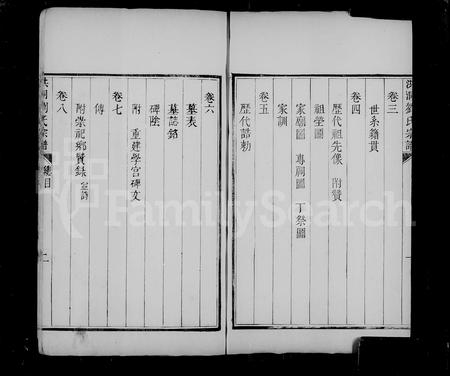 洪洞劉氏宗譜
卷三
世系籍貫
卷四
歷代祖先像 附贊
祖塋圖
家廟圖 專祠圖 丁祭圖
家訓
卷五
歷代誥勅
卷六
墓表
墓誌銘
碑陰
附 重建學宮碑文
卷七
傳
附崇祀鄉賢錄
卷八
洪洞劉氏宗譜 總目 二
FamilySearch